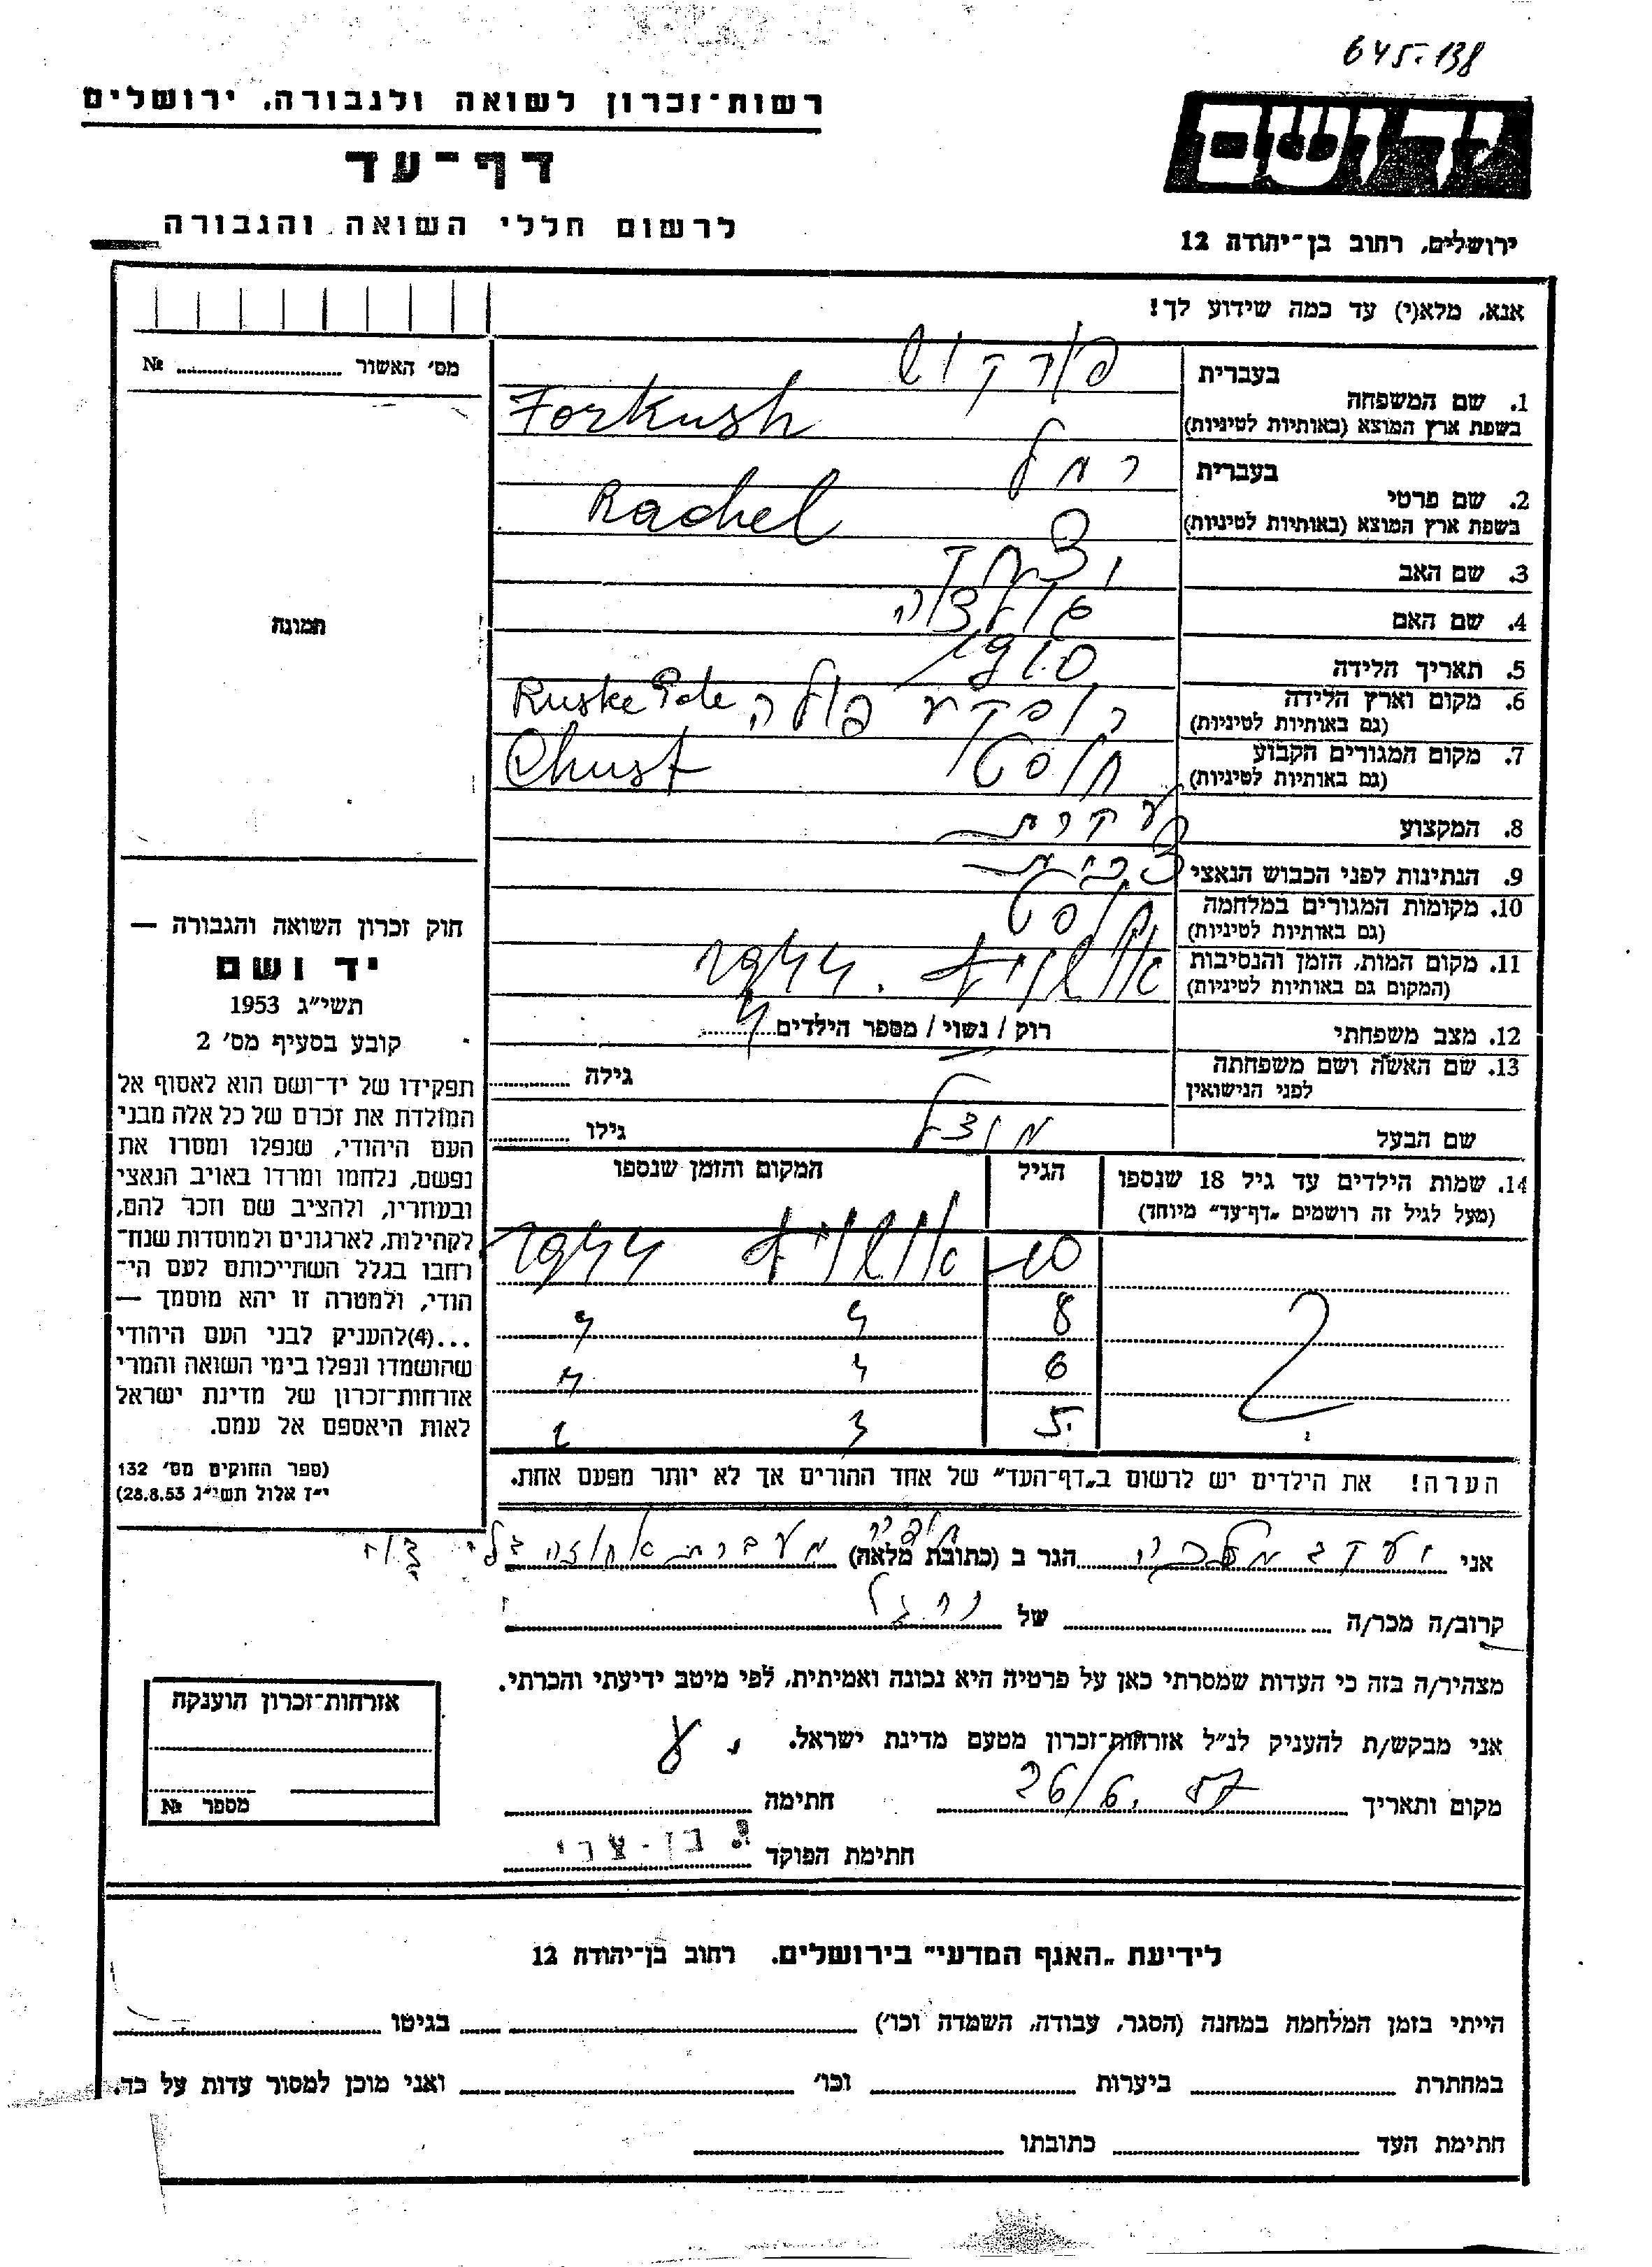 645-138
רשות־זכרון לשואה ולגבורה, ירושלים
ידושם
דף־עד
לרשום חללי השואה והגבורה
ירושלים, רחוב בן־יהודה 12
אנא, מלא(י) עד כמה שידוע לך!
מס׳ האשור № 
בעברית פורקוש
1. שם המשפחה
בשפת ארץ המוצא (באותיות לטיניות) Forkush
בעברית רחל
2. שם פרטי
בשפת ארץ המוצא (באותיות לטיניות) Rachel
3. שם האב
4. שם האם
5. תאריך הלידה 1910
6. מקום וארץ הלידה רוסקע פולה Ruske Pole
(גם באותיות לטיניות)
7. מקום המגורים הקבוע חוסט Chust
(גם באותיות לטיניות)
8. המקצוע עקרת
9. הנתינות לפני הכבוש הנאצי צכית
10. מקומות המגורים במלחמה חוסט
(גם באותיות לטיניות)
11. מקום המות, הזמן והנסיבות אושויץ. 1944
(המקום גם באותיות לטיניות)
12. מצב משפחתי רוק / נשוי / מספר הילדים 4
13. שם האשה ושם משפחתה
לפני הנישואין גילה
שם הבעל גילו
14. שמות הילדים עד גיל 18 שנספו הגיל המקום והזמן שנספו
(מעל לגיל זה רושמים „דף־עד״ מיוחד)
10 אושויץ 1944
8 " "
6 " "
5
הערה! את הילדים יש לרשום ב„דף־העד״ של אחד ההורים אך לא יותר מפעם אחת.
תמונה
חוק זכרון השואה והגבורה —
יד ושם
תשי״ג 1953
קובע בסעיף מס׳ 2
תפקידו של יד־ושם הוא לאסוף אל
המולדת את זכרם של כל אלה מבני
העם היהודי, שנפלו ומסרו את
נפשם, נלחמו ומרדו באויב הנאצי
ובעוזריו, ולהציב שם וזכר להם,
לקהילות, לארגונים ולמוסדות שנח־
רבו בגלל השתייכותם לעם הי־
הודי, ולמטרה זו יהא מוסמך —
...(4) להעניק לבני העם היהודי
שהושמדו ונפלו בימי השואה והמרי
אזרחות־זכרון של מדינת ישראל
לאות היאספם אל עמם.
(ספר החוקים מס׳ 132
י״ז אלול תשי״ג 28.8.53)
אני יעקב הגר ב (כתובת מלאה) מעברת
קרוב/ה מכר/ה של
מצהיר/ה בזה כי העדות שמסרתי כאן על פרטיה היא נכונה ואמיתית, לפי מיטב ידיעתי והכרתי.
אני מבקש/ת להעניק לנ״ל אזרחות־זכרון מטעם מדינת ישראל.
מקום ותאריך 26/6. 57 חתימה
חתימת הפוקד בן-צבי
אזרחות־זכרון הוענקה
מספר №
לידיעת „האגף המדעי״ בירושלים. רחוב בן־יהודה 12
הייתי בזמן המלחמה במחנה (הסגר, עבודה, השמדה וכו׳) בגיטו
במחתרת ביערות וכו׳ ואני מוכן למסור עדות על כך.
חתימת העד כתובתו